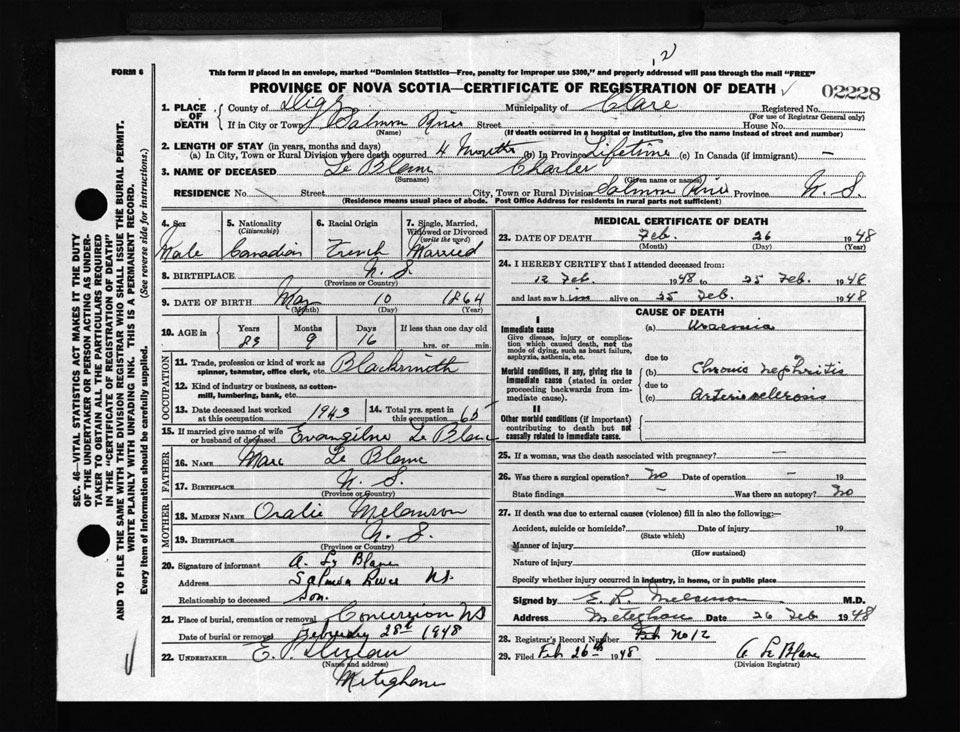 12
FORM 6
This form if placed in an envelope, marked "Dominion Statistics—Free, penalty for improper use $300," and properly addressed will pass through the mail "FREE"
PROVINCE OF NOVA SCOTIA—CERTIFICATE OF REGISTRATION OF DEATH ✓ 02228
1. PLACE OF DEATH County of Digby Municipality of Clare Registered No.
(For use of Registrar General only)
If in City or Town Salmon River Street House No.
(Name) (If death occurred in a hospital or institution, give the name instead of street and number)
2. LENGTH OF STAY (in years, months and days)
(a) In City, Town or Rural Division where death occurred 4 Months (b) In Province Lifetime (c) In Canada (if immigrant) —
3. NAME OF DECEASED Le Blanc Charles
(Surname) (Given name or names)
RESIDENCE No. Street City, Town or Rural Division Salmon River Province N. S.
(Residence means usual place of abode. Post Office Address for residents in rural parts not sufficient)
SEC. 46—VITAL STATISTICS ACT MAKES IT THE DUTY
OF THE UNDERTAKER OR PERSON ACTING AS UNDER-
TAKER TO OBTAIN ALL THE PARTICULARS REQUIRED
IN THE "CERTIFICATE OF REGISTRATION OF DEATH"
AND TO FILE THE SAME WITH THE DIVISION REGISTRAR WHO SHALL ISSUE THE BURIAL PERMIT.
WRITE PLAINLY WITH UNFADING INK. THIS IS A PERMANENT RECORD.
Every item of information should be carefully supplied. (See reverse side for instructions.)
4. Sex 5. Nationality (Citizenship) 6. Racial Origin 7. Single, Married, Widowed or Divorced (write the word)
Male Canadian French Married
8. BIRTHPLACE N. S.
(Province or Country)
9. DATE OF BIRTH May 10 1864
(Month) (Day) (Year)
10. AGE in Years Months Days If less than one day old
83 9 16 hrs. or min.
OCCUPATION
11. Trade, profession or kind of work as spinner, teamster, office clerk, etc. Blacksmith
12. Kind of industry or business, as cotton-mill, lumbering, bank, etc.
13. Date deceased last worked at this occupation 1943 14. Total yrs. spent in this occupation 65
15. If married give name of wife or husband of deceased Evangeline Le Blanc
FATHER
16. NAME Marc Le Blanc
17. BIRTHPLACE N. S.
(Province or Country)
MOTHER
18. MAIDEN NAME Oralie Melanson
19. BIRTHPLACE N. S.
(Province or Country)
20. Signature of informant A. Le Blanc
Address Salmon River NS.
Relationship to deceased Son.
21. Place of burial, cremation or removal Concession NS
Date of burial or removal February 28th 1948
22. UNDERTAKER E.
(Name and address)
Meteghan
MEDICAL CERTIFICATE OF DEATH
23. DATE OF DEATH Feb. 26 1948
(Month) (Day) (Year)
24. I HEREBY CERTIFY that I attended deceased from:
12 Feb. 1948 to 25 Feb. 1948
and last saw him alive on 25 Feb. 1948
CAUSE OF DEATH
I
Immediate cause (a) Uraemia
Give disease, injury or complication which caused death, not the mode of dying, such as heart failure, asphyxia, asthenia, etc.
due to
Morbid conditions, if any, giving rise to immediate cause (stated in order proceeding backwards from immediate).
(b) Chronic nephritis
due to
(c) Arteriosclerosis
II
Other morbid conditions (if important) contributing to death but not causally related to immediate cause.
25. If a woman, was the death associated with pregnancy? —
26. Was there a surgical operation? No Date of operation — 19
State findings — Was there an autopsy? No
27. If death was due to external causes (violence) fill in also the following:—
Accident, suicide or homicide? Date of injury 19
(State which)
Manner of injury
(How sustained)
Nature of injury
Specify whether injury occurred in industry, in home, or in public place
Signed by E. L. Melanson M.D.
Address Meteghan 26 Feb 1948
28. Registrar's Record Number Feb No 12
29. Filed Feb 26th 1948 A Le Blanc
(Division Registrar)